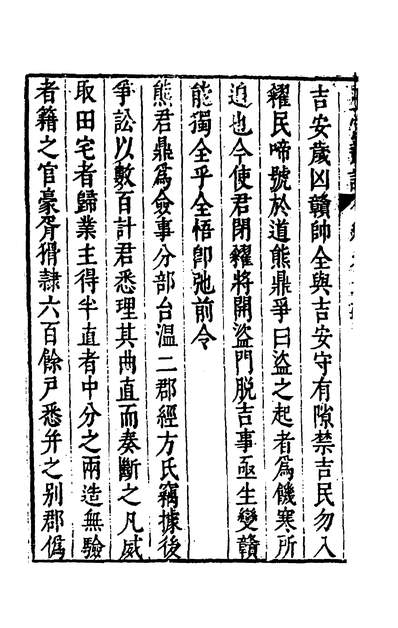 吉安歲凶贛帥全與吉安守有隙禁吉民勿入
糴民啼號於道熊鼎爭曰盜之起者爲饑寒所
迫也今使君閉糴將開盜門脱吉事亟生變贛
能獨全乎全悟卽弛前令
熊君鼎爲僉事分部台溫二郡經方氏竊據後
爭訟以數百計君悉理其曲直而奏斷之凡威
取田宅者歸業主得半直者中分之兩造無驗
者籍之官豪胥猾隷六百餘戸悉弁之别郡僞